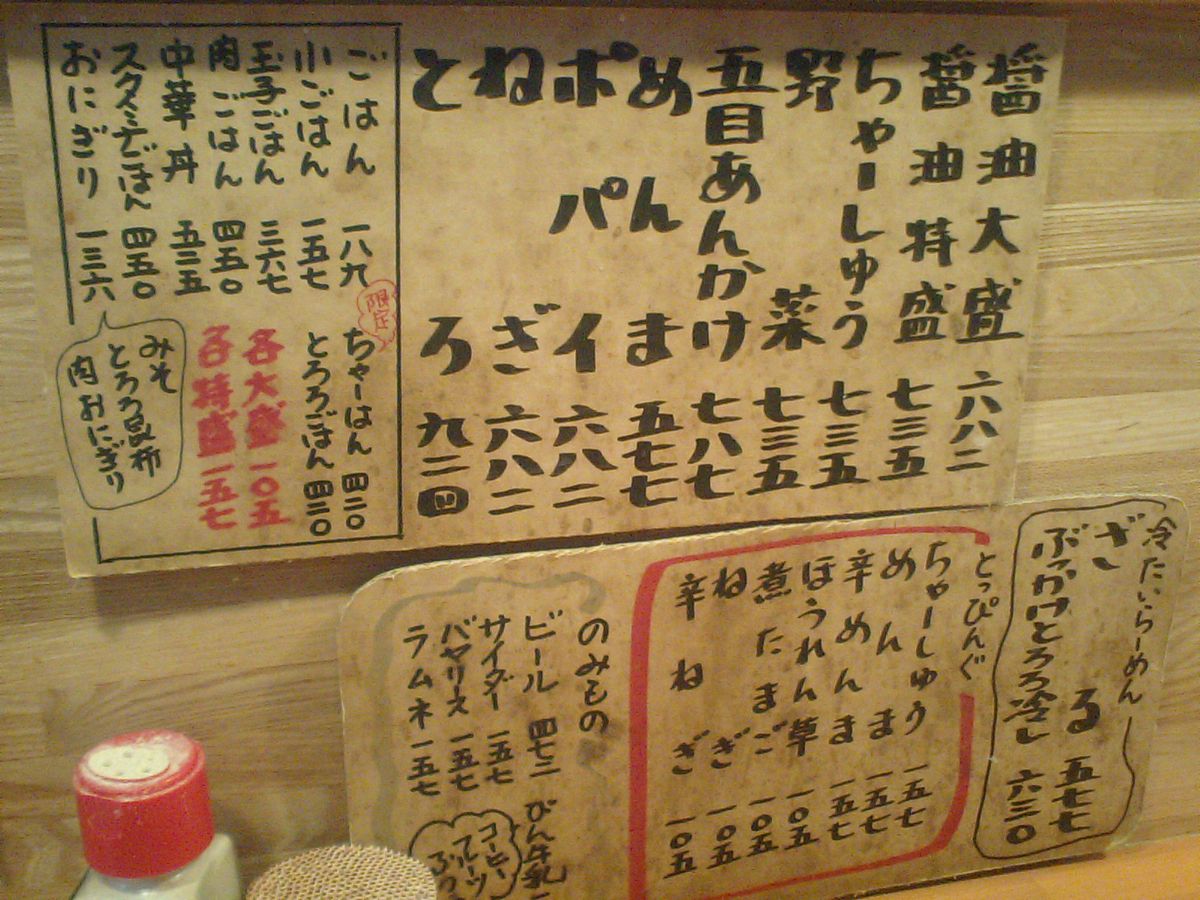 醤油大盛 六八二
醤油特盛 七三五
ちゃーしゅう 七三五
野菜 七三五
五目あんかけ 七八七
めんま 五七七
ポパイ 六八二
ねぎ 六八二
とろろ 九二四
ごはん 一八九
小ごはん 一五七
玉子ごはん 三六七
肉ごはん 四五〇
中華丼 五三五
スタミナごはん 四五〇
おにぎり 一三六
限定
ちゃーはん 四二〇
とろろごはん 四二〇
各大盛 一〇五
各特盛 一五七
みそ
とろろ昆布
肉おにぎり
冷たいらーめん
ざる 五七七
ぶっかけとろろ冷し 六三〇
とっぴんぐ
ちゃーしゅう 一五七
めんま 一五七
辛めんま 一五七
ほうれん草 一〇五
煮たまご 一〇五
ねぎ 一〇五
辛ねぎ 一〇五
のみもの
ビール 四七二
サイダー 一五七
バヤリース 一五七
ラムネ 一五七
びん牛乳
コーヒー
フルーツ